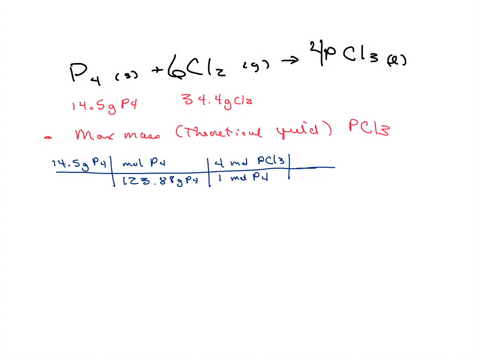 P4 (s) + 6Cl2 (g) → 4PCl3 (l)
14.5g P4 34.4g Cl2
- Max mass (Theoretical yield) PCl3
14.5g P4 | mol P4 | 4 mol PCl3 |
123.88g P4 | 1 mol P4